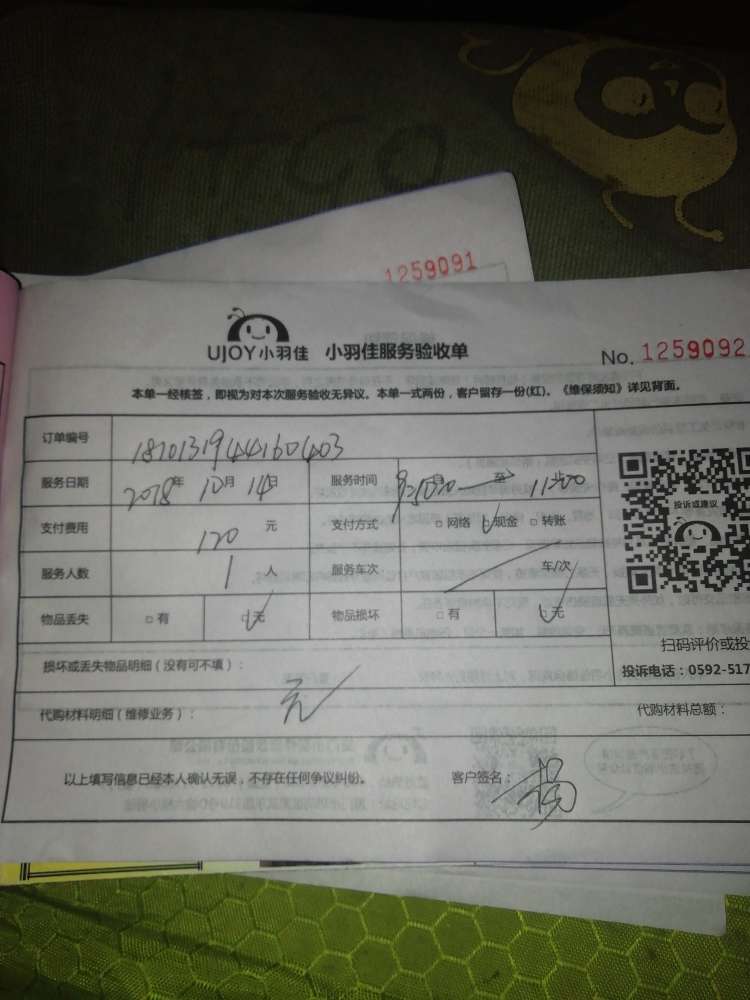 1259091
UJOY小羽佳 小羽佳服务验收单 No. 1259092
本单一经核签，即视为对本次服务验收无异议。本单一式两份，客户留存一份(红)。《维保须知》详见背面。
订单编号 1810131944160403
服务日期 2018年 10月 14日 服务时间 至 11:00
支付费用 120 元 支付方式 □ 网络 ☑现金 □ 转账
服务人数 1 人 服务车次 车/次
物品丢失 □ 有 ☑无 物品损坏 □ 有 ☑无
投诉或建议
扫码评价或投
损坏或丢失物品明细（没有可不填）：
投诉电话：0592-517
代购材料明细（维修业务）： 无 代购材料总额：
以上填写信息已经本人确认无误，不存在任何争议纠纷。 客户签名： 杨